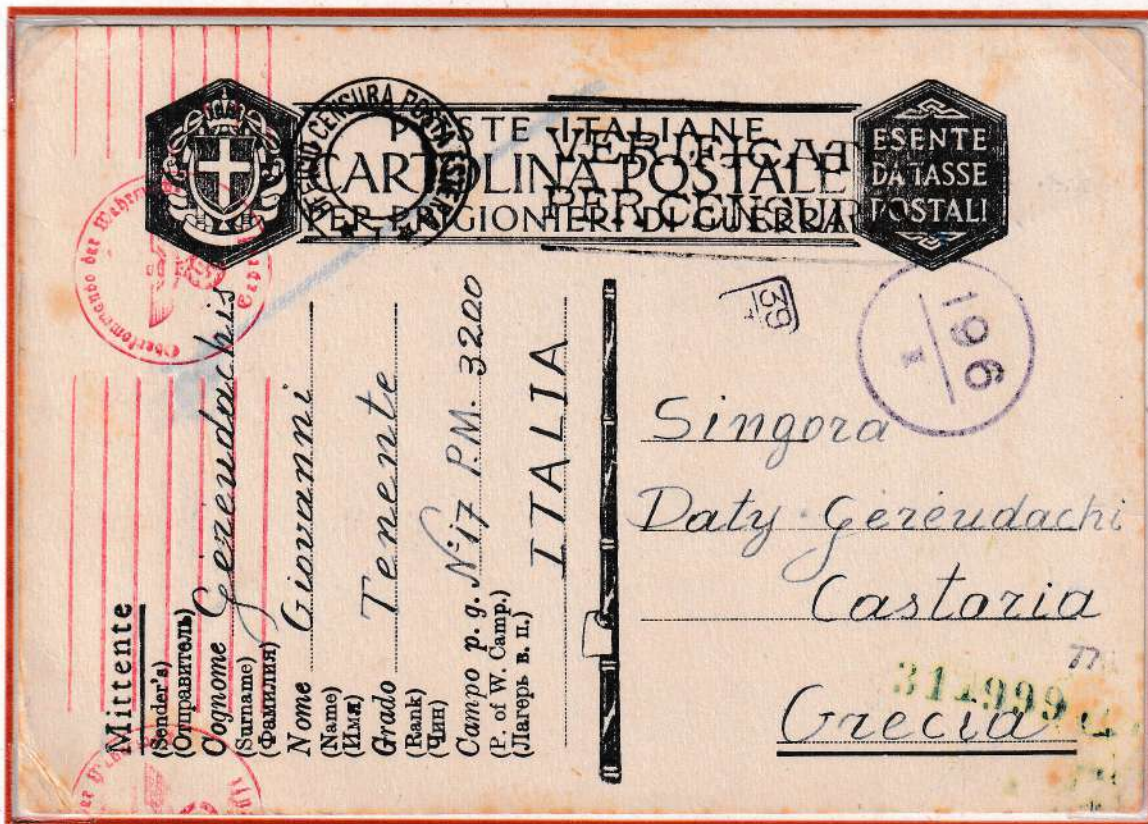 POSTE ITALIANE
CARTOLINA POSTALE
PER PRIGIONIERI DI GUERRA
VERIFICAT
PER CENSURA
CENSURA POSTA ESTERA
ESENTE
DA TASSE
POSTALI
Oberkommando der Wehrmacht
Mittente
(Sender's)
(Отправитель)
Cognome Gereudachis
(Surname)
(Фамилия)
Nome Giovanni
(Name)
(Имя)
Grado Tenente
(Rank)
(Чин)
Campo p. g. N:17 P.M. 3200
(P. of W. Camp.)
(Лагерь в. п.)
ITALIA
39
196
I
Singora
Daty Géréudachi
Castoria
77
311999
Grecia